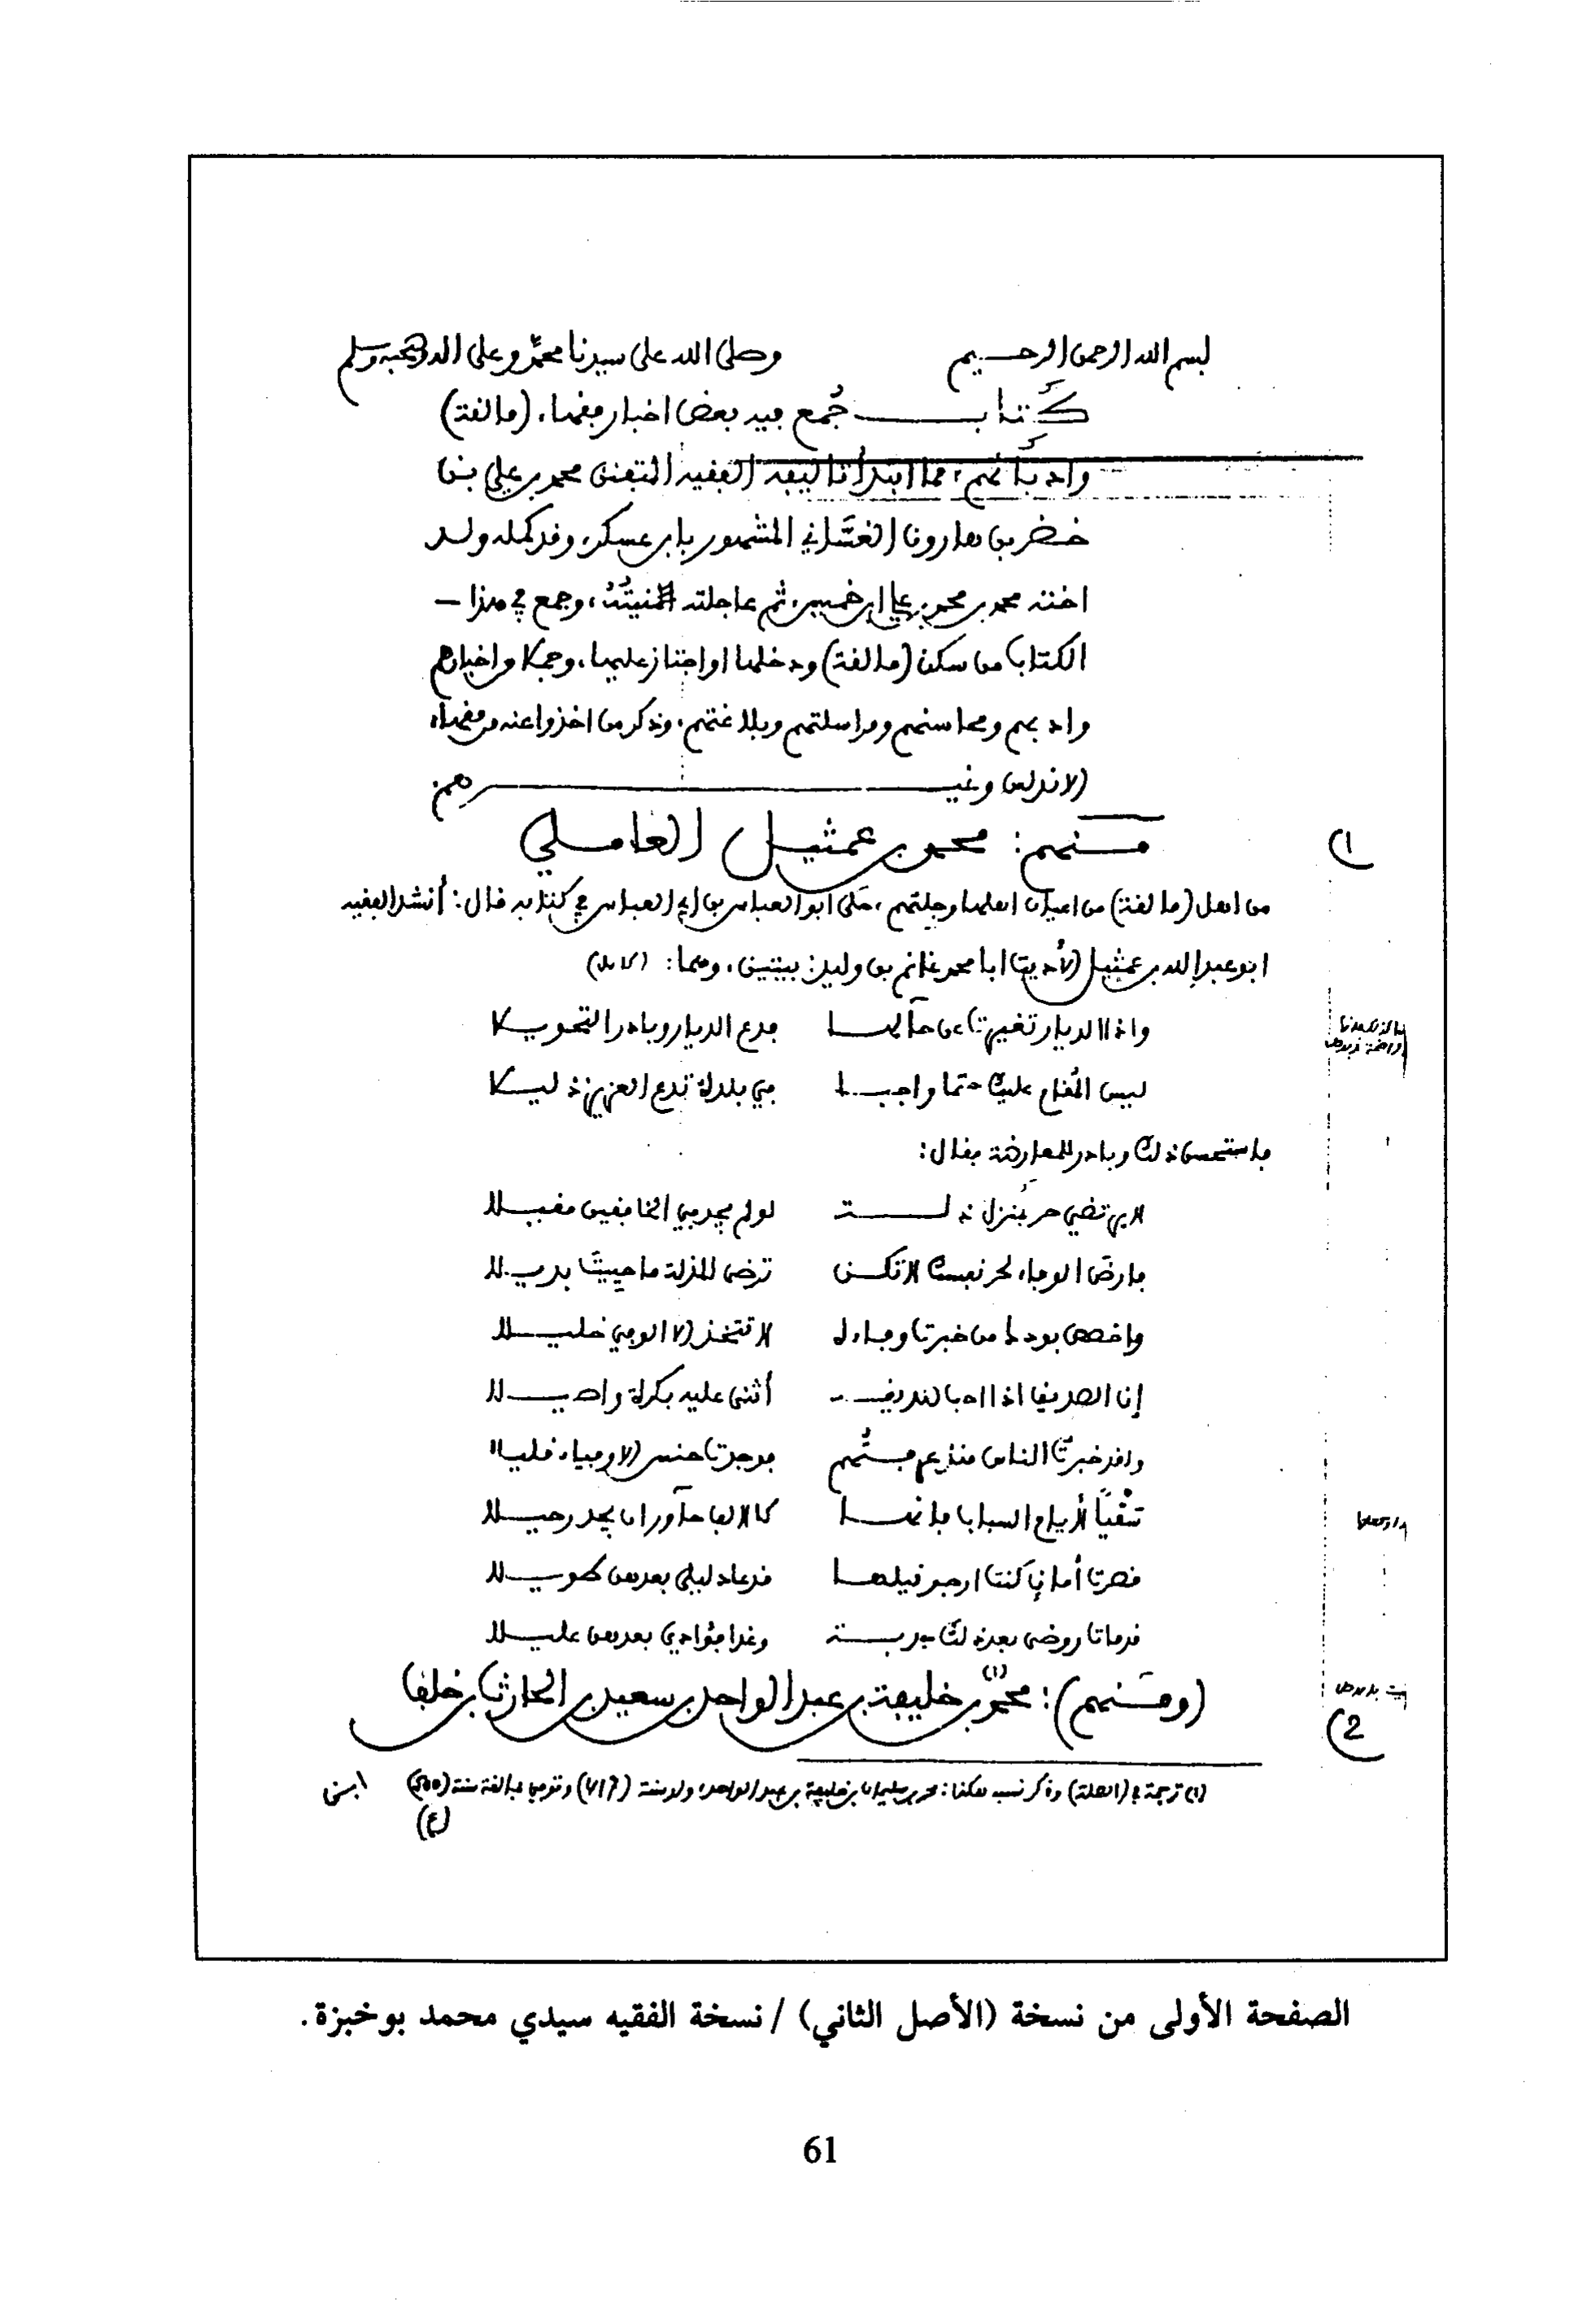 بسم الله الرحمن الرحيم وصلى الله على سيدنا محمد وعلى آله وصحبه وسلم
كتاب جُمع فيه بعض اخبار فقهاء (مالقة)
وادبائهم، مما ابتدأ تاليفه الفقيه المتفنن محمد بن علي بن
خضر بن هارون الغسَّاني المشهور بابن عسكر، وقد كمله ولد
اخته محمد بن محمد بن علي ابن خميس، ثم عاجلته المنيَّة، وجمع في هذا
الكتاب من سكن (مالقة) ودخلها او اجتاز عليها، وجملا من اخبارهم
وادبهم ومحاسنهم ومراسلتهم وبلاغتهم، وذكر من اخذوا عنه من فقهاء
الاندلس وغيرهم
1) منهم: محمد بن عمثيل العاملي
من اهل (مالقة) من اعيان اهلها وجلتهم، حكى ابو العباس بن ابي العباس في كتابه قال: أنشد الفقيه
ابو عبد الله بن عمثيل الأديب ابا محمد غانم بن وليد: بيتين، وهما: (كامل)
واذا الديار تغيرت عن حالها فدع الديار وبادر التحويلا
ليس المُقام عليك حتما واجبا في بلدة تدع العزيز ذليلا
فاستحسن ذلك وبادر للمعارضة فقال:
لا يرتضي حر بمنزل ذلة لو لم يجد في الخافقين مقيلا
فارض الوفاء لحر نفسك لا تكن ترضى المذلة ما حييت بديلا
واخصص بودك من خبرت وفاءه لا تتخذ إلا الوفي خليلا
أثنى عليه بكرة واصيلا
ولقد خبرت الناس منذ عرفتُهم فوجدت جنس الاوفياء قليلا
كالآل
قصرت أمانٍ كنت ارجو نيلها قد عاد ليلي بعدهن طويلا
قد مات روض بعد ذلك وغدا فؤادي بعدهن عليلا
2) (ومنهم): محمد بن خليفة بن عبد الواحد بن سعيد بن الحارث بن خلف (1)
(1) ترجمة في (الصلة) وذكر نسبه هكذا: محمد بن سليمان بن خليفة بن عبد الواحد، ولد سنة (417) وتوفي بمالقة سنة (500) ابن
(ع)
الصفحة الأولى من نسخة (الأصل الثاني) / نسخة الفقيه سيدي محمد بوخبزة.
61